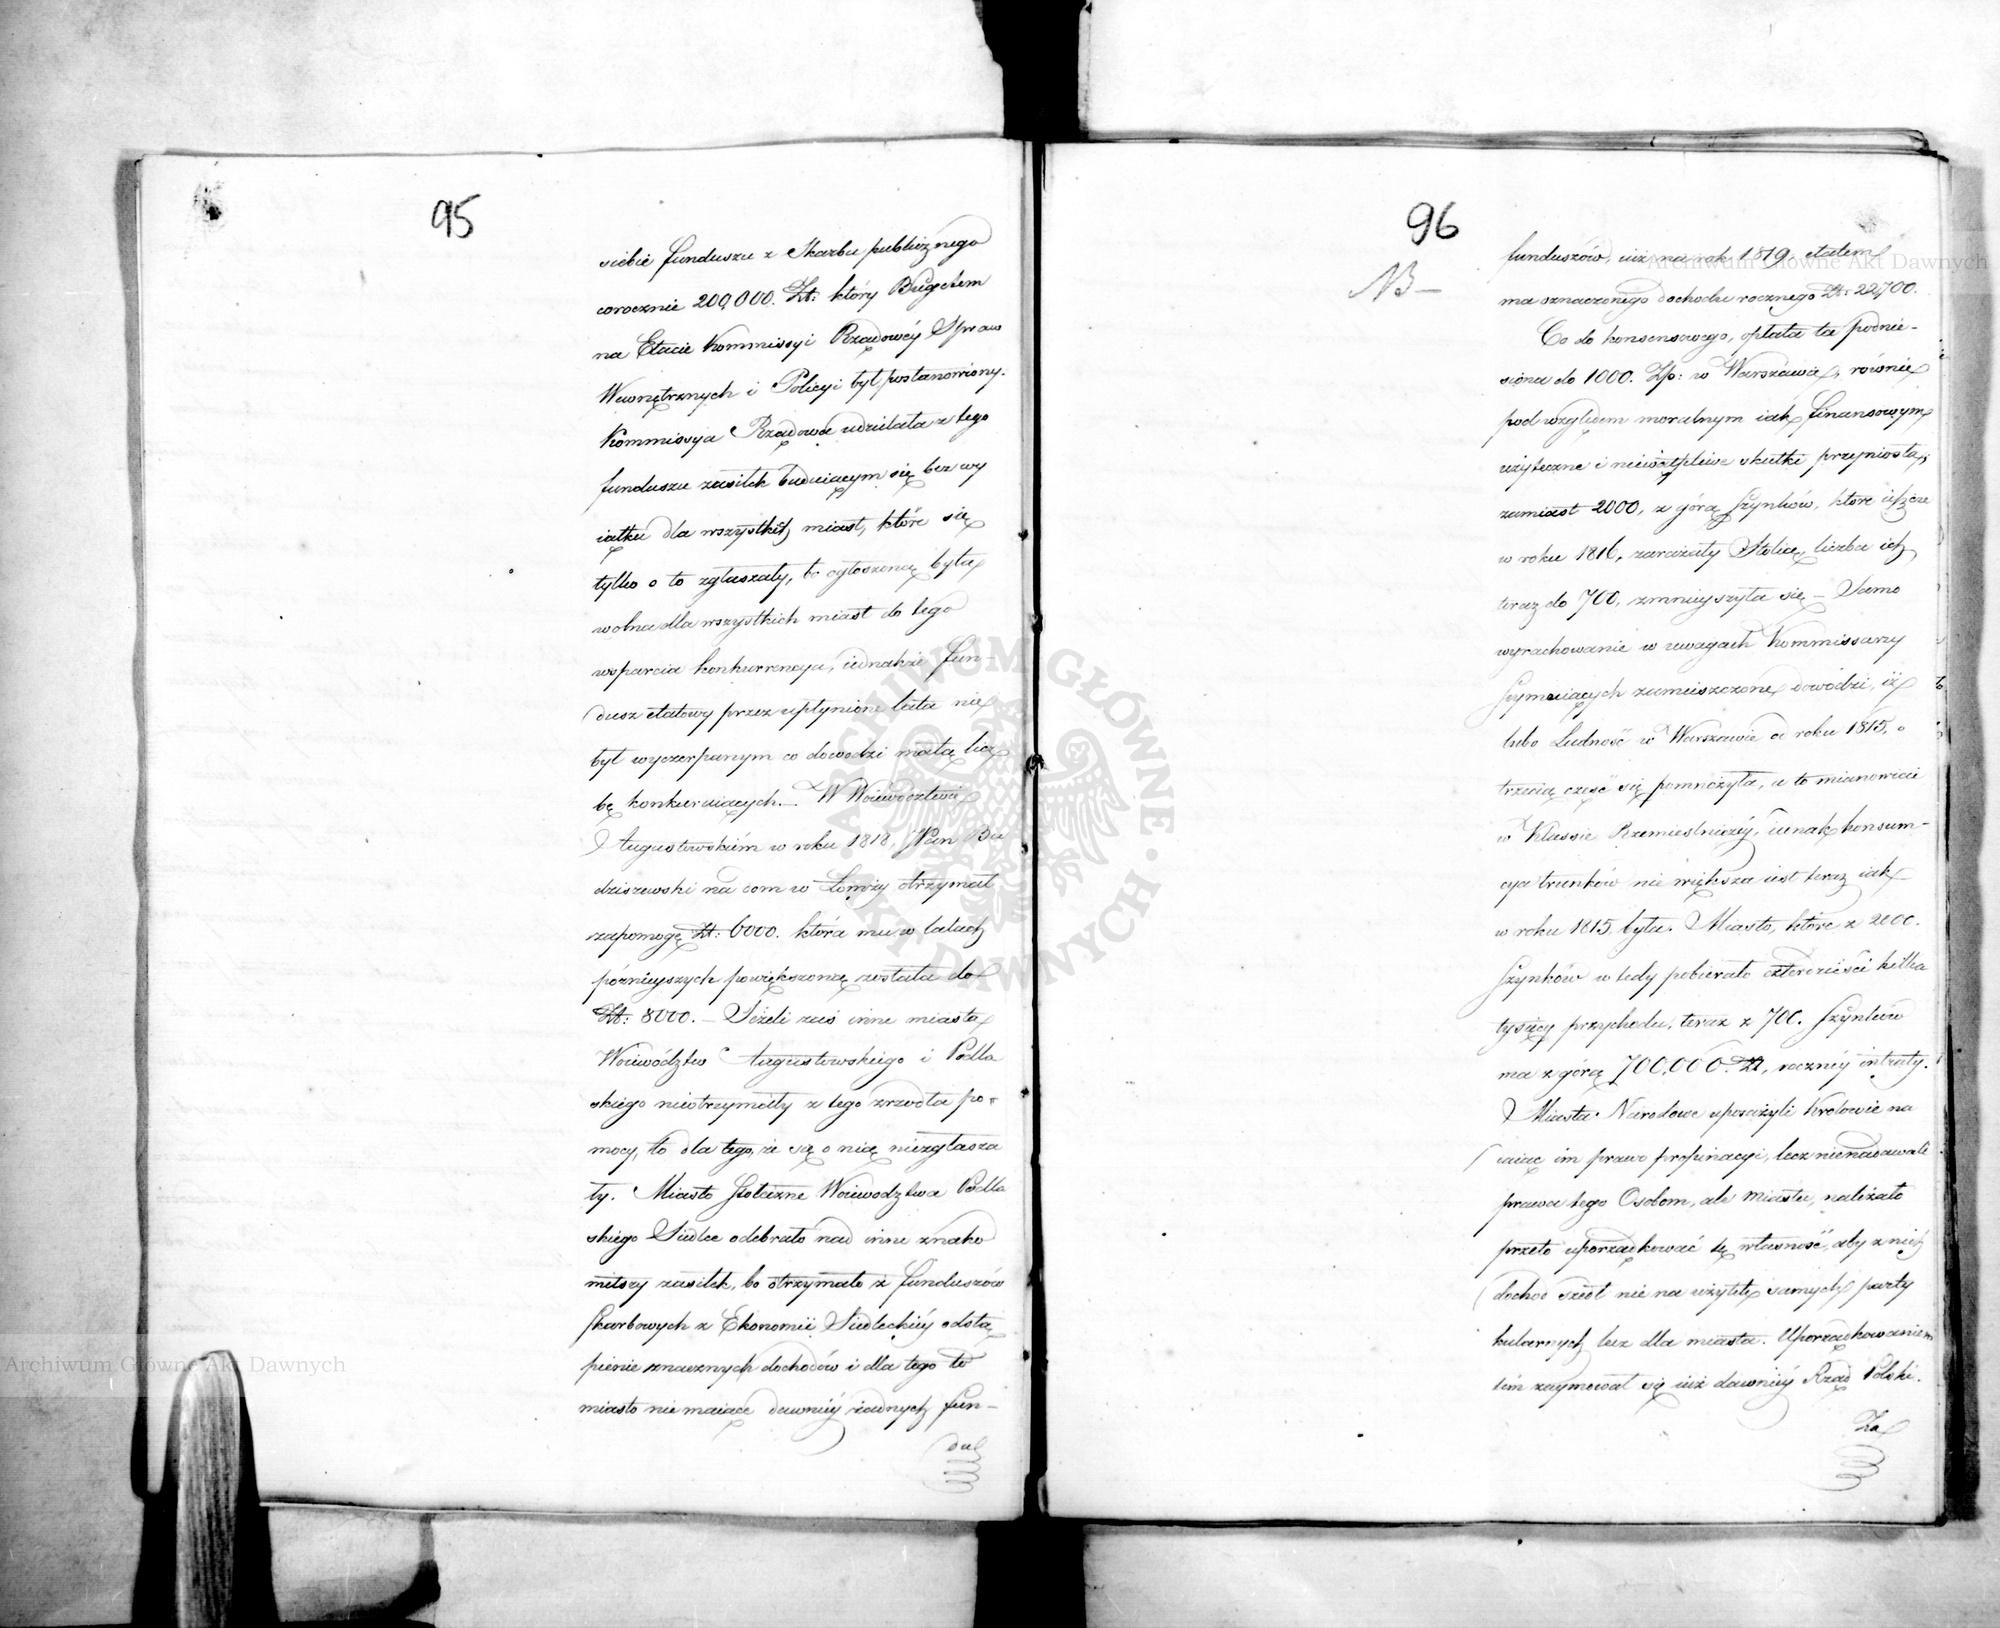 95
siebie funduszu z Skarbu publicznego
corocznie 200,000. Zł: który Bugetem
na Etacie Kommissyi Rządowéy Spraw
Wewnętrznych i Policyi był postanowiony.
Kommissya Rządowa udzielała z tego
funduszu zasiłek buduiącym się bez wy
iątku dla wszystkich miast, które się
tylko o to zgłaszały, bo ogłoszoną była
wolna dla wszystkich miast do tego
wsparcia konkurrencya, iednakże fun-
dusz etatowy przez upłynione lata nie
był wyczerpanym co dowodzi małą licz
bę konkuruiących. – W Woiewództwie
Augustowskiém w roku 1818, Pan Bu
dziszewski na dom w Łomży otrzymał
zapomogę Zł: 6000. która mu w latach
pózniyszych powiększoną została do
Zł: 8000. – Jeżeli zaś inne miasta
Woiewództw Augustowskiego i Podla
skiego nieotrzymały z tego zrzodła po-
mocy, to dla tego, że się o nią niezgłasza
ły. Miasto Stołeczne Woiewodztwa Podla
skiego Siedlce odebrało nad inne znako
mitszy zasiłek, bo otrzymało z funduszów
Skarbowych z Ekonomii Siedleckiéy odstą
pienie znacznych dochodów i dla tego to
miasto nie maiące dawniéy żadnych fun-
du
96
NB –
funduszów, iuż na rok 1819, etatem
ma oznaczonego dochodu rocznego Zł: 22,700.
Co do konsensowego, opłata ta podnie-
siona do 1000. Zp: w Warszawie, równie
pod względem moralnym iak finansowym
użyteczne i niewątpliwe skutki przyniosła,
zamiast 2000, z górą Szynków, które ieszcze
w roku 1816, zarażały Stolicę, liczba ich
teraz do 700, zmnieyszyła się – Samo
wyrachowanie w uwagach Kommissarzy
Seymuiących zamieszczone dowodzi, iż
lubo Ludność w Warszawie od roku 1815, o
trzecią część się pomnożyła, a to mianowicie
w Klassie Rzemieślniczéy, iednak konsum-
cya trunków nie większa iest teraz iak
w roku 1815 była. Miasto, które z 2000.
Szynków w tedy pobierało czterdzieści kilka
tysięcy przychodu, teraz z 700. Szynków
ma z górą 700,000 Zł, rocznéy intraty.
Miasta Narodowe uposażyli Królowie na
daiąc im prawo propinacyi, lecz nienadawali
prawa tego Osobom, ale miastu, należało
przeto uporządkować tę własność, aby z niéy
dochód szedł nie na użytek samych party
kularnych lecz dla miasta. Uporządkowaniem
tém zaymował się iuż dawniéy Rząd Polski.
Za
Archiwum Główne Akt Dawnych
Archiwum Główne Akt Dawnych
ARCHIWUM GŁÓWNE · AKT DAWNYCH ·